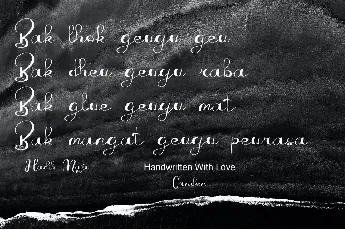 Bak lhok geugu geu
Bak dheu geugu raba
Bak glue geugu mat
Bak mangat geugu peurasa
Handwritten With Love